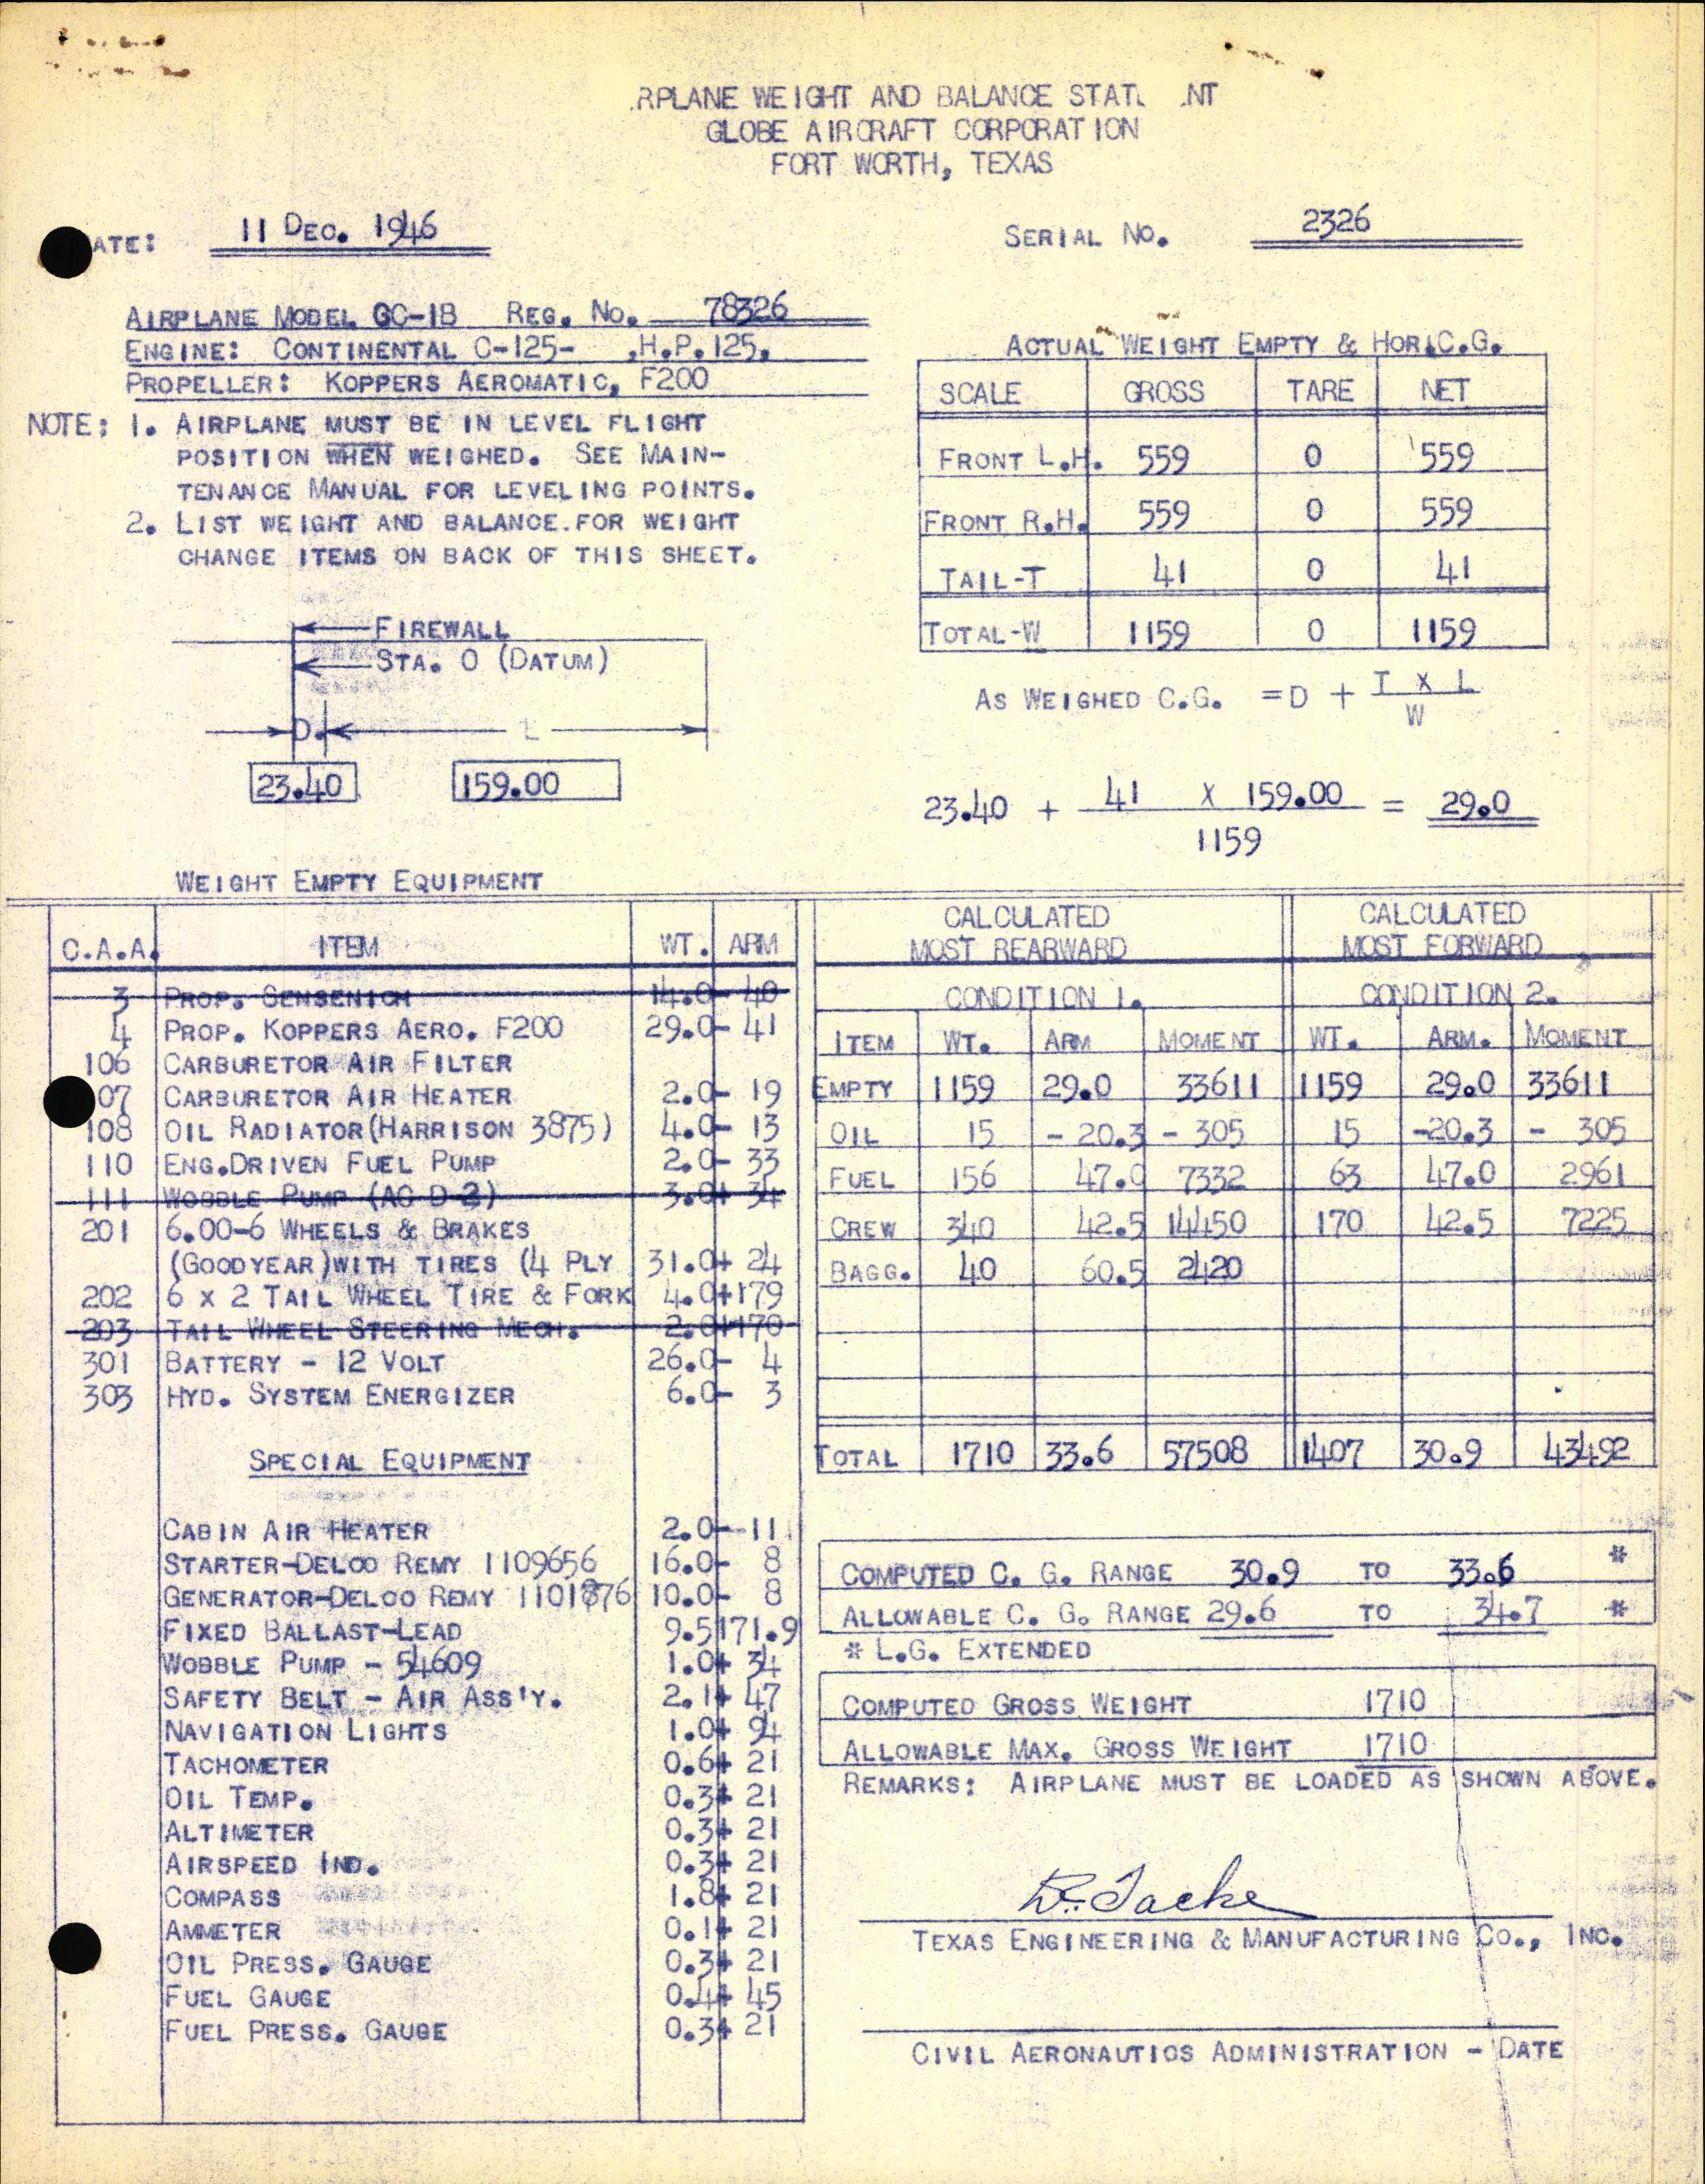 RPLANE WEIGHT AND BALANCE STAT NT
GLOBE AIRCRAFT CORPORATION
FORT WORTH, TEXAS
ATE: 11 DEC. 1946
SERIAL NO. 2326
AIRPLANE MODEL GC-1B REG. NO. 78326
ENGINE: CONTINENTAL C-125- ,H.P. 125,
PROPELLER: KOPPERS AEROMATIC, F200
NOTE: 1. AIRPLANE MUST BE IN LEVEL FLIGHT
POSITION WHEN WEIGHED. SEE MAIN-
TENANCE MANUAL FOR LEVELING POINTS.
2. LIST WEIGHT AND BALANCE.FOR WEIGHT
CHANGE ITEMS ON BACK OF THIS SHEET.
FIREWALL
STA. 0 (DATUM)
D. L
23.40 159.00
ACTUAL WEIGHT EMPTY & HOR.C.G.
SCALE GROSS TARE NET
FRONT L.H. 559 0 559
FRONT R.H. 559 0 559
TAIL-T 41 0 41
TOTAL-W 1159 0 1159
AS WEIGHED C.G. = D + T X L
W
23.40 + 41 X 159.00 = 29.0
1159
WEIGHT EMPTY EQUIPMENT
C.A.A. ITEM WT. ARM
3 PROP. SENSENICH 14.0- 40
4 PROP. KOPPERS AERO. F200 29.0- 41
106 CARBURETOR AIR FILTER
07 CARBURETOR AIR HEATER 2.0- 19
108 OIL RADIATOR(HARRISON 3875) 4.0- 13
110 ENG.DRIVEN FUEL PUMP 2.0- 33
111 WOBBLE PUMP (AC D-2) 3.0+ 34
201 6.00-6 WHEELS & BRAKES
(GOODYEAR)WITH TIRES (4 PLY 31.0+ 24
202 6 X 2 TAIL WHEEL TIRE & FORK 4.0+179
203 TAIL WHEEL STEERING MECH. 2.0+170
301 BATTERY - 12 VOLT 26.0- 4
303 HYD. SYSTEM ENERGIZER 6.0- 3
SPECIAL EQUIPMENT
CABIN AIR HEATER 2.0- -11
STARTER-DELCO REMY 1109656 16.0- 8
GENERATOR-DELCO REMY 1101876 10.0- 8
FIXED BALLAST-LEAD 9.5 171.9
WOBBLE PUMP - 54609 1.0+ 34
SAFETY BELT - AIR ASS'Y. 2.1+ 47
NAVIGATION LIGHTS 1.0+ 94
TACHOMETER 0.6+ 21
OIL TEMP. 0.3+ 21
ALTIMETER 0.3+ 21
AIRSPEED IND. 0.3+ 21
COMPASS 1.8+ 21
AMMETER 0.1+ 21
OIL PRESS. GAUGE 0.3+ 21
FUEL GAUGE 0.4+ 45
FUEL PRESS. GAUGE 0.3+ 21
CALCULATED CALCULATED
MOST REARWARD MOST FORWARD
CONDITION 1. CONDITION 2.
ITEM WT. ARM MOMENT WT. ARM. MOMENT
EMPTY 1159 29.0 33611 1159 29.0 33611
OIL 15 - 20.3 - 305 15 -20.3 - 305
FUEL 156 47.0 7332 63 47.0 2961
CREW 340 42.5 14450 170 42.5 7225
BAGG. 40 60.5 2420
TOTAL 1710 33.6 57508 1407 30.9 43492
COMPUTED C. G. RANGE 30.9 TO 33.6 *
ALLOWABLE C. G. RANGE 29.6 TO 34.7 *
* L.G. EXTENDED
COMPUTED GROSS WEIGHT 1710
ALLOWABLE MAX. GROSS WEIGHT 1710
REMARKS: AIRPLANE MUST BE LOADED AS SHOWN ABOVE.
TEXAS ENGINEERING & MANUFACTURING CO., INC.
CIVIL AERONAUTICS ADMINISTRATION - DATE